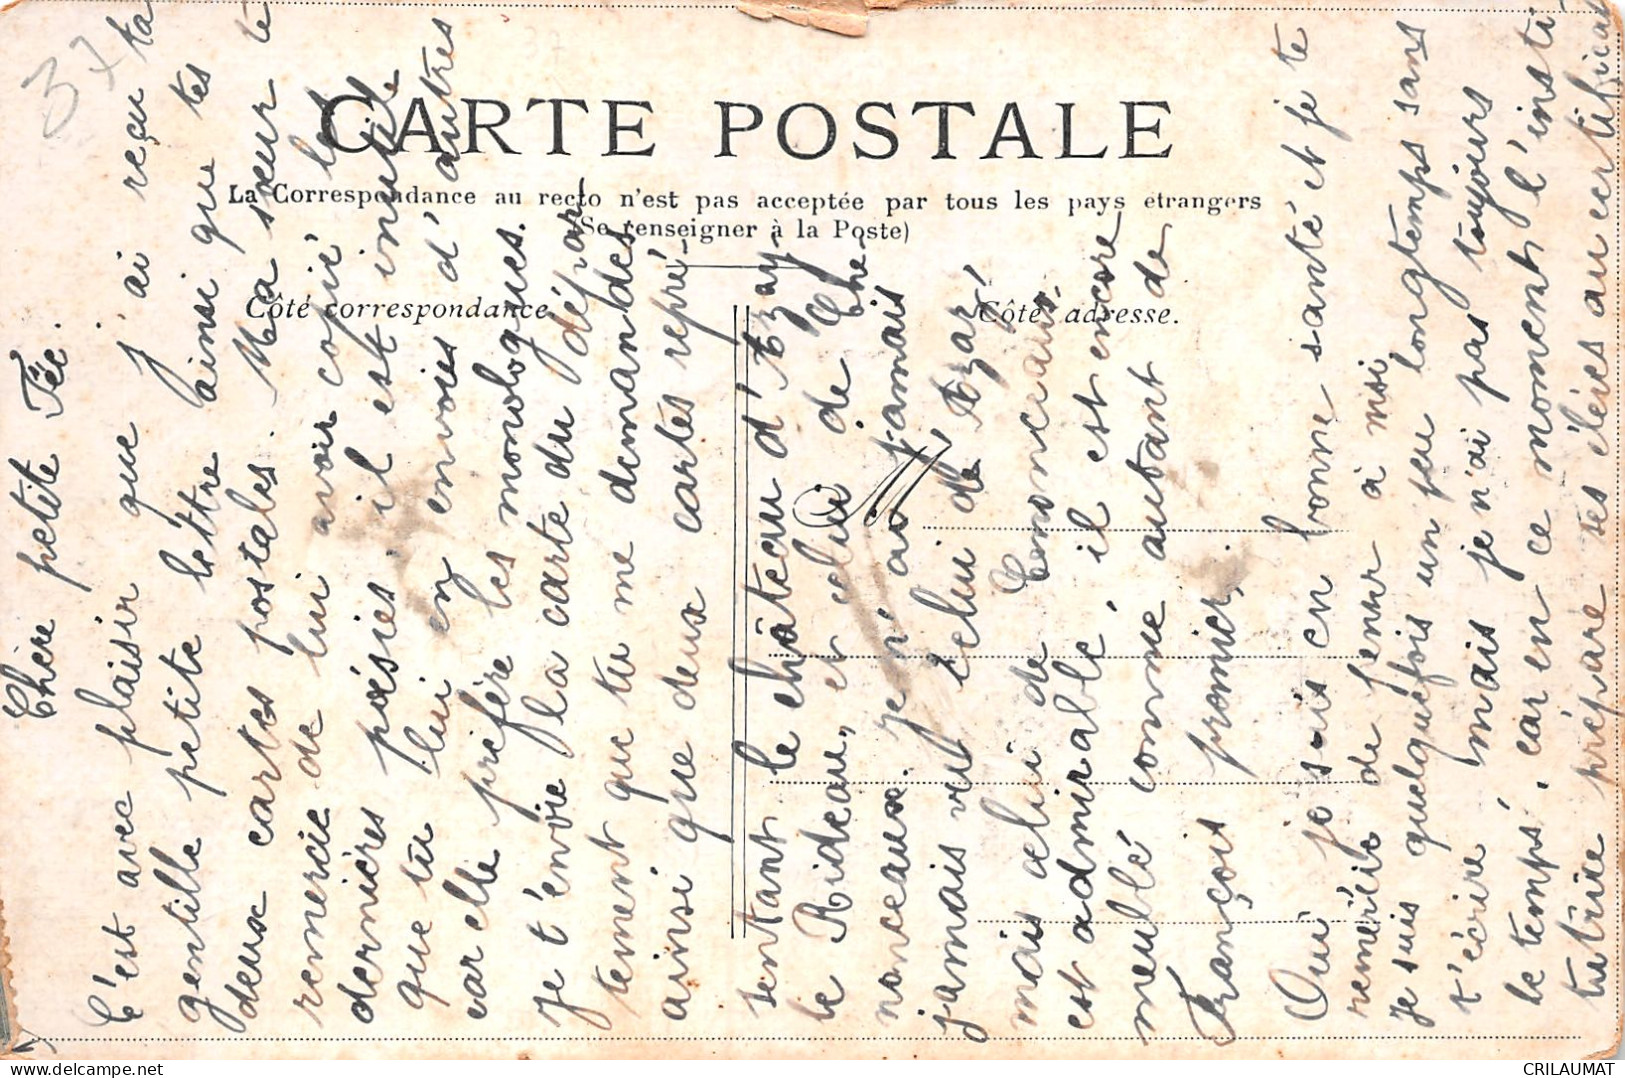 37
CARTE POSTALE
La Correspondance au recto n'est pas acceptée par tous les pays étrangers
(Se renseigner à la Poste)
Côté correspondance.
Côté adresse.
M
Chère petite Fée.
C'est avec plaisir que j'ai reçu ta
gentille petite lettre ainsi que tes
deux cartes postales. Ma sœur te
remercie de lui avoir copié les
dernières poésies il est inutile
que tu lui en envoies d'autres
car elle préfère les monologues.
je t'envoie la carte du dépar
tement que tu me demandes
ainsi que deux cartes repré
sentant le château d'Azay
le Rideau, et celui de Che
nonceaux. je n'ai jamais
jamais vu celui de Azay
mais celui de Chenonceaux,
est admirable, il est encore
meublé comme autant de
François premier,
Oui je suis en bonne santé et je te
remercie de penser à moi
je suis quelquefois un peu longtemps sans
t'écrire mais je n'ai pas toujours
le temps. car en ce moment l'insti
tutrice prépare ses élèves au certificat
CRILAUMAT